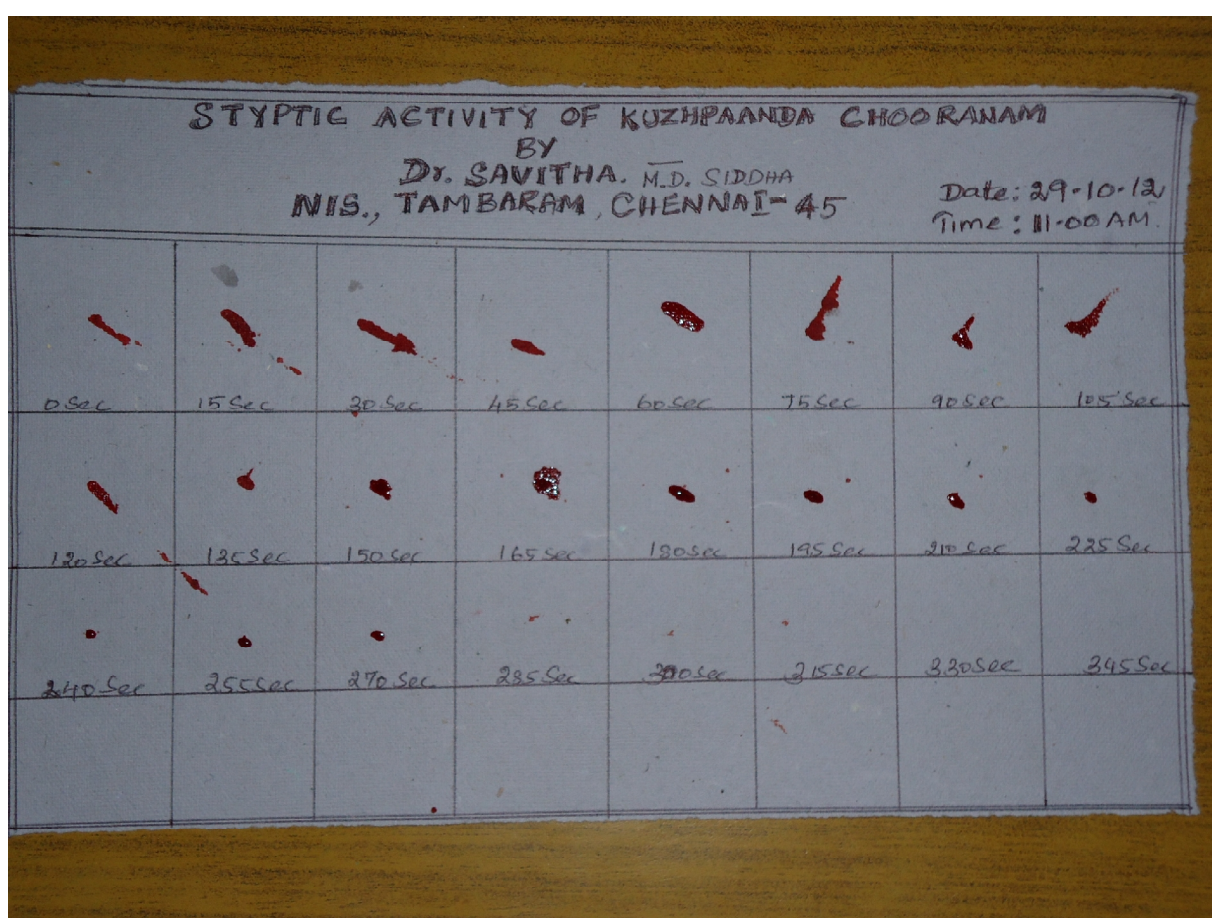 STYPTIC ACTIVITY OF KUZHPAANDA CHOORANAM
BY
Dr. SAVITHA. M.D. SIDDHA
NIS., TAMBARAM, CHENNAI-45
Date: 29-10-12
Time: 11-00 AM.
0 Sec 15 Sec 30 Sec 45 Sec 60 Sec 75 Sec 90 Sec 105 Sec
120 Sec 135 Sec 150 Sec 165 Sec 180 Sec 195 Sec 210 Sec 225 Sec
240 Sec 255 Sec 270 Sec 285 Sec 300 Sec 315 Sec 330 Sec 345 Sec